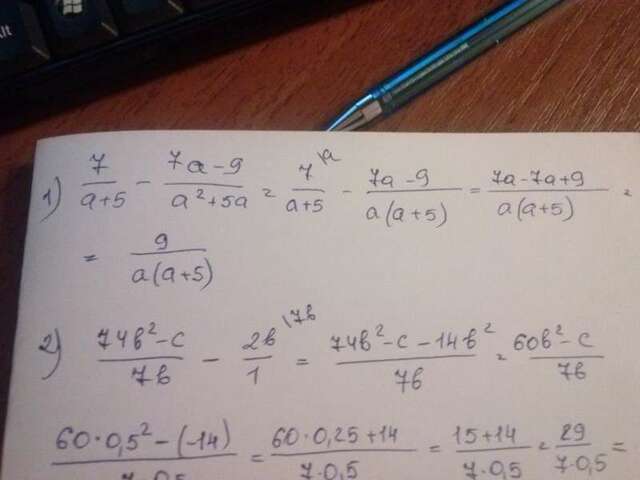 lt
1) 7/(a+5) − (7a−9)/(a²+5a) = 7\a/(a+5) − (7a−9)/(a(a+5)) = (7a−7a+9)/(a(a+5)) =
= 9/(a(a+5))
2) (74b²−c)/(7b) − 2b\7b/1 = (74b²−c−14b²)/(7b) = (60b²−c)/(7b)
(60·0,5²−(−14))/(7·0,5) = (60·0,25+14)/(7·0,5) = (15+14)/(7·0,5) = 29/(7·0,5) =